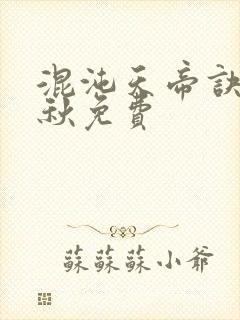 混沌天帝訣
秋免費
蘇蘇蘇小爺